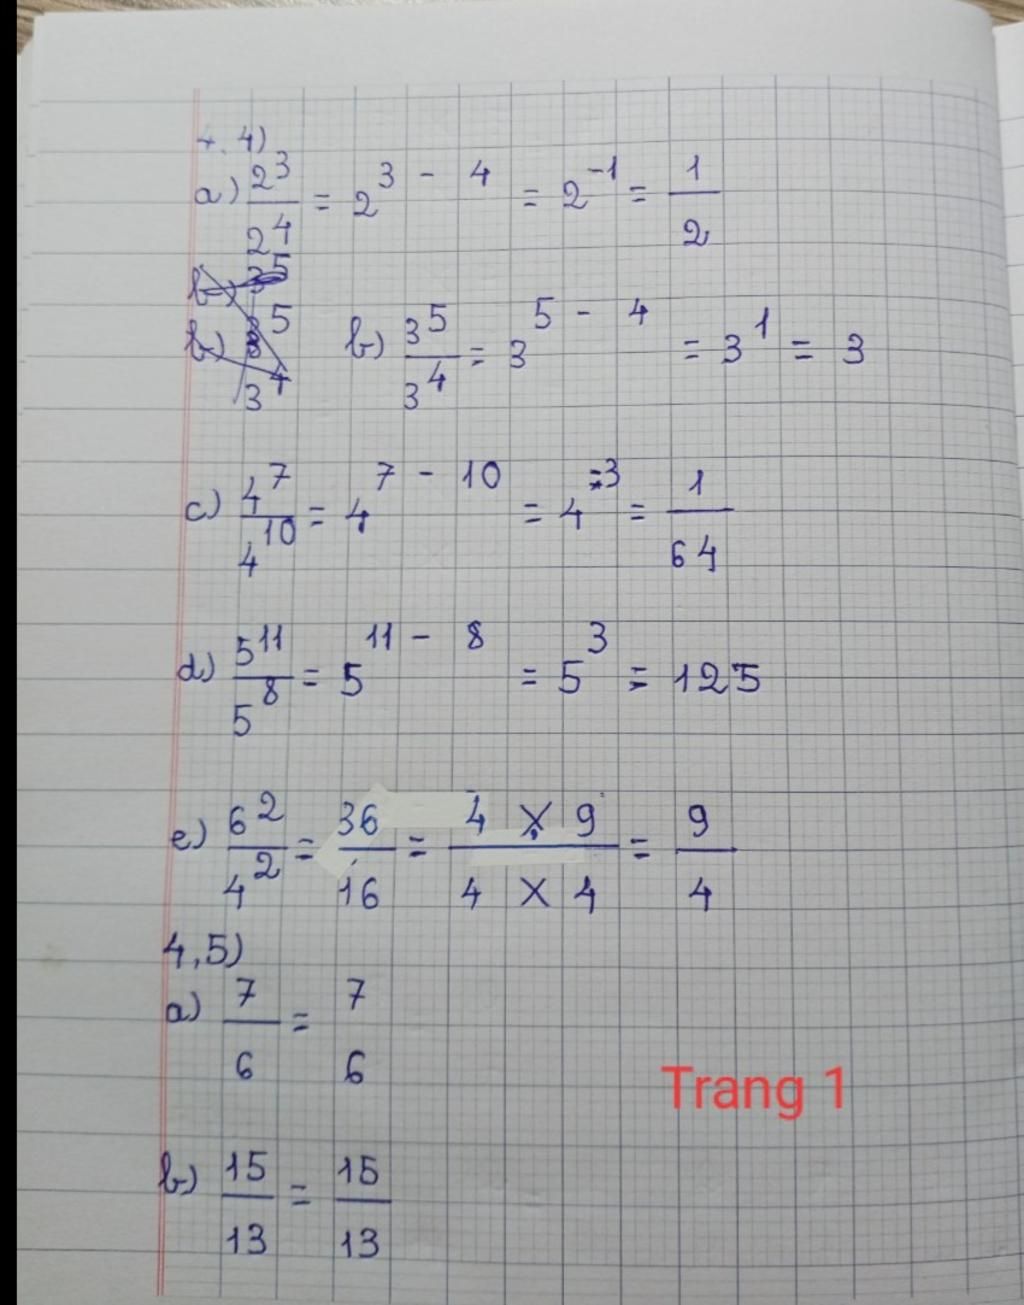 4.4)
a) 2³/2⁴ = 2³ ⁻ ⁴ = 2⁻¹ = 1/2
b) 3⁵
b) 3⁵/3⁴ b) 3⁵/3⁴ = 3⁵ ⁻ ⁴ = 3¹ = 3
c) 4⁷/4¹⁰ = 4⁷ ⁻ ¹⁰ = 4⁻³ = 1/64
d) 5¹¹/5⁸ = 5¹¹ ⁻ ⁸ = 5³ = 125
e) 6²/4² = 36/16 = 4 × 9/4 × 4 = 9/4
4,5)
a) 7/6 = 7/6
Trang 1
b) 15/13 = 15/13